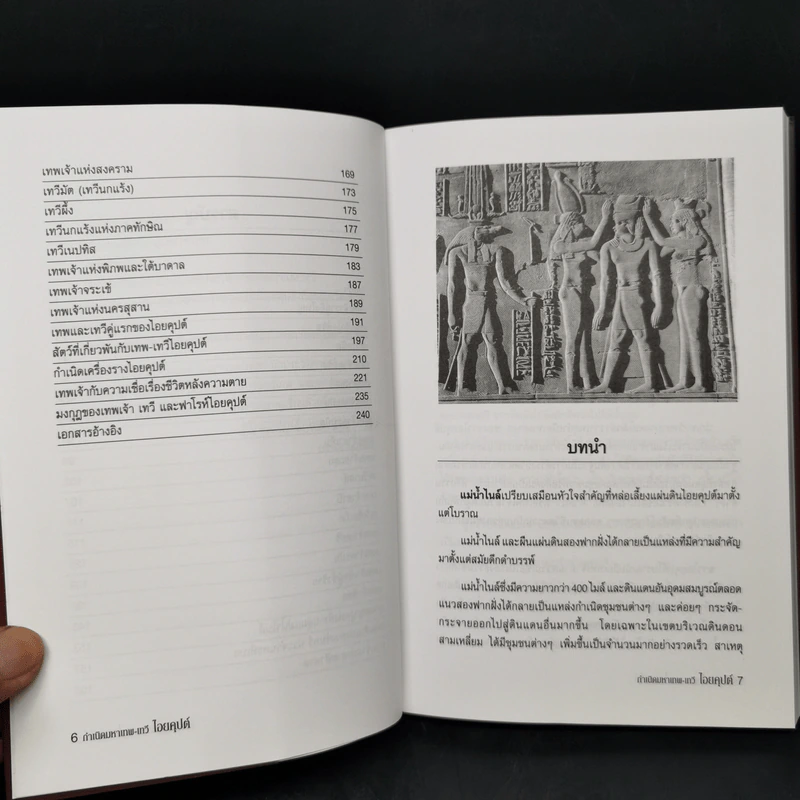 เทพเจ้าแห่งสงคราม 169
เทวีมัต (เทวีนกแร้ง) 173
เทวีผึ้ง 175
เทวีนกแร้งแห่งภาคทักษิณ 177
เทวีเนปทิส 179
เทพเจ้าแห่งพิภพและใต้บาดาล 183
เทพเจ้าจระเข้ 187
เทพเจ้าแห่งนครสุสาน 189
เทพและเทวีคู่แรกของไอยคุปต์ 191
สัตว์ที่เกี่ยวพันกับเทพ-เทวีไอยคุปต์ 197
กำเนิดเครื่องรางไอยคุปต์ 210
เทพเจ้ากับความเชื่อเรื่องชีวิตหลังความตาย 221
มงกุฎของเทพเจ้า เทวี และฟาโรห์ไอยคุปต์ 235
เอกสารอ้างอิง 240
6 กำเนิดมหาเทพ-เทวี ไอยคุปต์
บทนำ
แม่น้ำไนล์เปรียบเสมือนหัวใจสำคัญที่หล่อเลี้ยงแผ่นดินไอยคุปต์มาตั้ง
แต่โบราณ
แม่น้ำไนล์ และผืนแผ่นดินสองฟากฝั่งได้กลายเป็นแหล่งที่มีความสำคัญ
มาตั้งแต่สมัยดึกดำบรรพ์
แม่น้ำไนล์ซึ่งมีความยาวกว่า 400 ไมล์ และดินแดนอันอุดมสมบูรณ์ตลอด
แนวสองฟากฝั่งได้กลายเป็นแหล่งกำเนิดชุมชนต่างๆ และค่อยๆ กระจัด-
กระจายออกไปสู่ดินแดนอื่นมากขึ้น โดยเฉพาะในเขตบริเวณดินดอน
สามเหลี่ยม ได้มีชุมชนต่างๆ เพิ่มขึ้นเป็นจำนวนมากอย่างรวดเร็ว สาเหตุ
กำเนิดมหาเทพ-เทวี ไอยคุปต์ 7